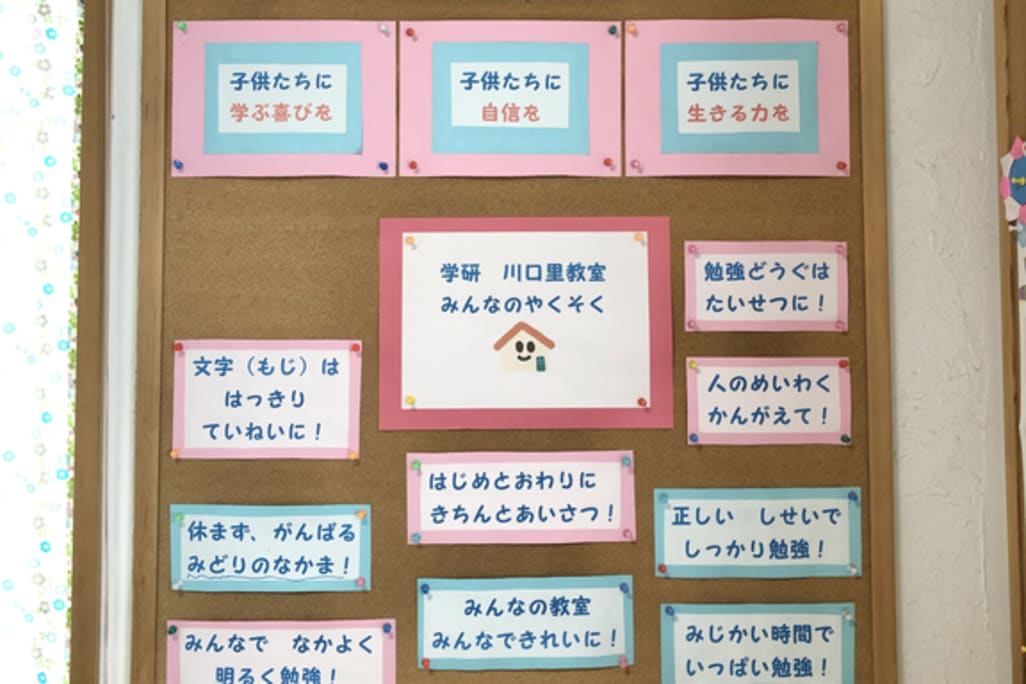 子供たちに
学ぶ喜びを
子供たちに
自信を
子供たちに
生きる力を
学研　川口里教室
みんなのやくそく
勉強どうぐは
たいせつに！
文字（もじ）は
はっきり
ていねいに！
人のめいわく
かんがえて！
はじめとおわりに
きちんとあいさつ！
休まず、がんばる
みどりのなかま！
正しい　しせいで
しっかり勉強！
みんなの教室
みんなできれいに！
みんなで　なかよく
明るく勉強！
みじかい時間で
いっぱい勉強！